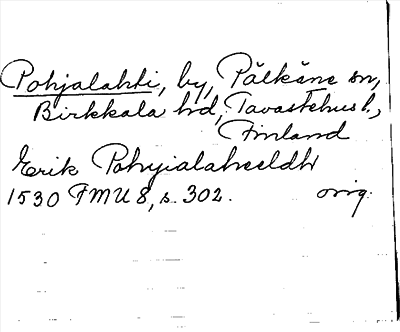 Pohjalahti, by, Pälkäne sn,
Birkkala hd, Tavastehus l.,
Finland
Erik Pohyialaheeldh
1530 FMU 8, s. 302. orig.